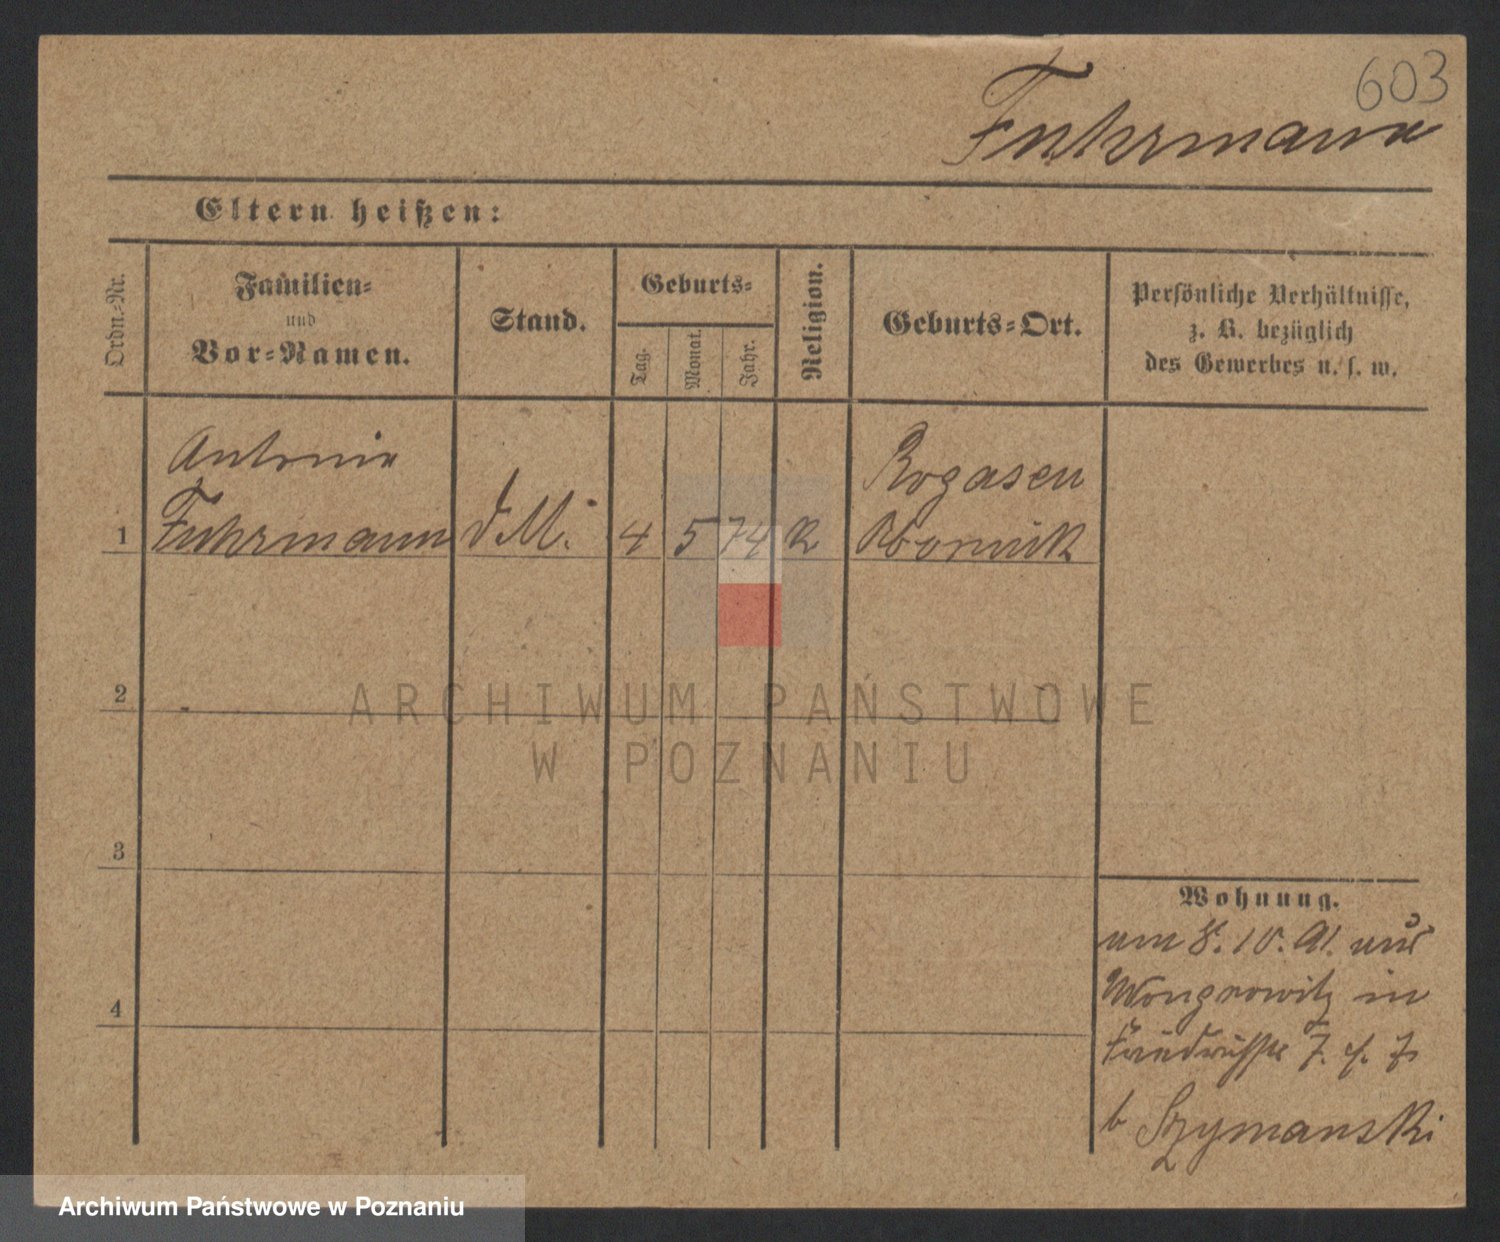 603
Fuhrmann
Eltern heißen:
Ordn.-Nr.
Familien-
und
Vor-Namen.
Stand.
Geburts-
Tag.
Monat.
Jahr.
Religion.
Geburts-Ort.
Persönliche Verhältnisse,
z. B. bezüglich
des Gewerbes u. s. w.
Antonie
Rogasen
1 Fuhrmann d. M. 4 5 74 K Obornik
2
ARCHIWUM PAŃSTWOWE
W POZNANIU
3
Wohnung.
am 8. 10. 91. aus
Wongrowitz in
4
b Szymanski
Archiwum Państwowe w Poznaniu